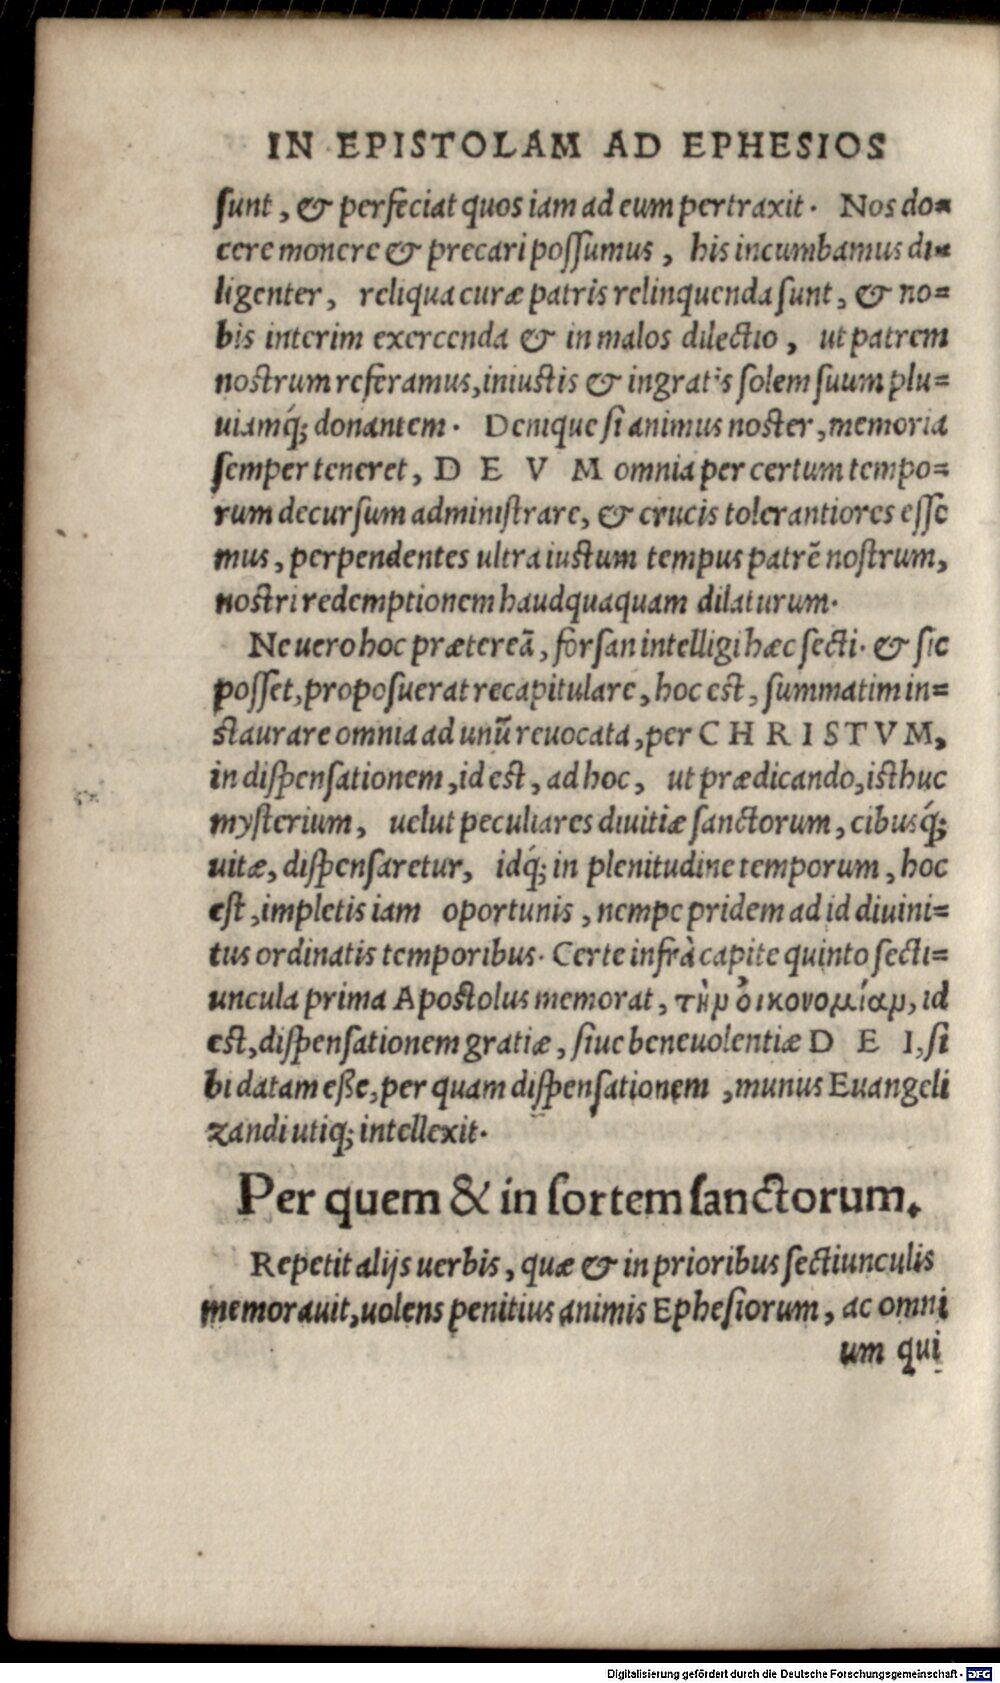 IN EPISTOLAM AD EPHESIOS
sunt, & perficiat quos iam ad eum pertraxit. Nos do=
cere monere & precari possumus, his incumbamus di=
ligenter, reliqua curæ patris relinquenda sunt, & no=
bis interim exercenda & in malos dilectio, ut patrem
nostrum referamus, iniustis & ingratis solem suum plu=
uiamq́; donantem. Denique si animus noster, memoria
semper teneret, DEVM omnia per certum tempo=
rum decursum administrare, & crucis tolerantiores esse
mus, perpendentes ultra iustum tempus patrē nostrum,
nostri redemptionem haudquaquam dilaturum.
Ne uero hoc prætereā, forsan intelligi hæc secti. & sic
posset, proposuerat recapitulare, hoc est, summatim in=
staurare omnia ad unū reuocata, per CHRISTVM,
in dispensationem, id est, ad hoc, ut prædicando, isthuc
mysterium, uelut peculiares diuitiæ sanctorum, cibusq́;
uitæ, dispensaretur, idq́; in plenitudine temporum, hoc
est, impletis iam oportunis, nempe pridem ad id diuini=
tus ordinatis temporibus. Certe infrà capite quinto secti=
uncula prima Apostolus memorat, τὴν ὀικονομίαν, id
est, dispensationem gratiæ, siue beneuolentiæ DEI, si
bi datam eße, per quam dispensationem, munus Euangeli
zandi utiq; intellexit.
Per quem & in sortem sanctorum.
Repetit alijs uerbis, quæ & in prioribus sectiunculis
memorauit, uolens penitius animis Ephesiorum, ac omni
um qui
Digitalisierung gefördert durch die Deutsche Forschungsgemeinschaft - DFG